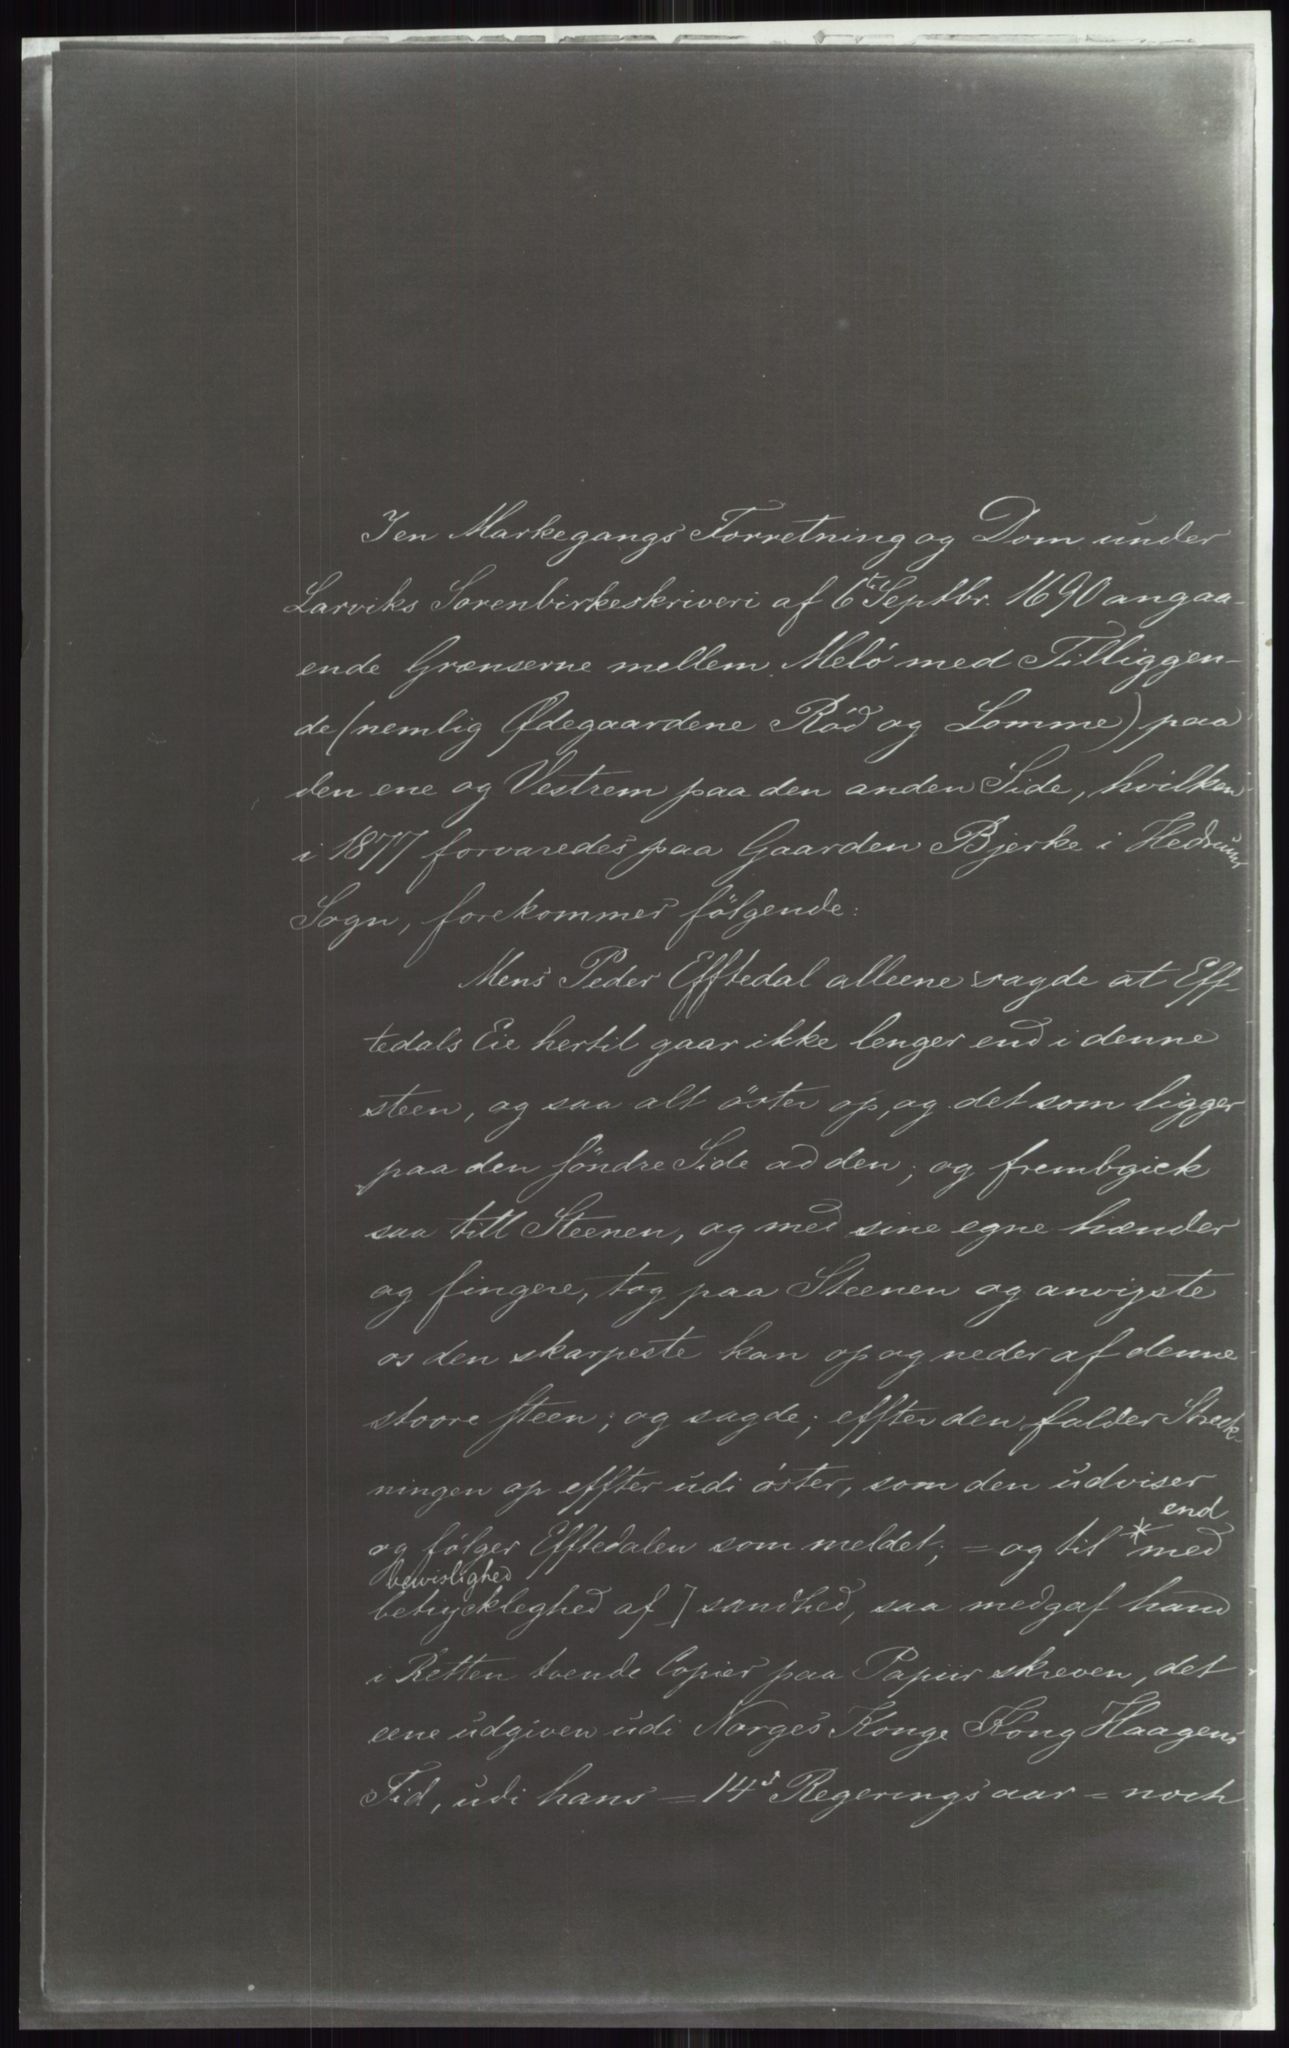 I en Markegangs Forretning og Dom under
Larviks Sorenbirkeskriveri af 6te Septbr. 1690 angaa-
ende Grænserne mellem Melö med Tilliggen-
de (nemlig Ødegaardene Röd og Lomme) paa
den ene og Vestrem paa den anden Side, hvilken
i 1877 forvaredes paa Gaarden Bjerke i Hedrum
Sogn, forekommer fölgende:
Mens Peder Efftedal alleene sagde at Eff-
tedals Eie hertil gaar ikke lenger end i denne
steen, og saa alt öster op, og det som ligger
paa den söndre Side ad den; og frembgick
saa till Steenen, og med sine egne hænder
og fingere, tog paa Steenen og anvigste
os den skarpeste kan op og neder af denne
stoore steen; og sagde; effter den falder Streck-
ningen op effter udi öster, som den udviser
end
og fölger Efftedalen som meldet; = og til * med
bewislighed
betryckleghed af ] sandhed, saa medgaf hand
i Retten tvende Copier paa Papiir skreven, det
eene udgiven udi Norges Konge Kong Haagens
Tid, udi hans = 14d Regerings aar = noch